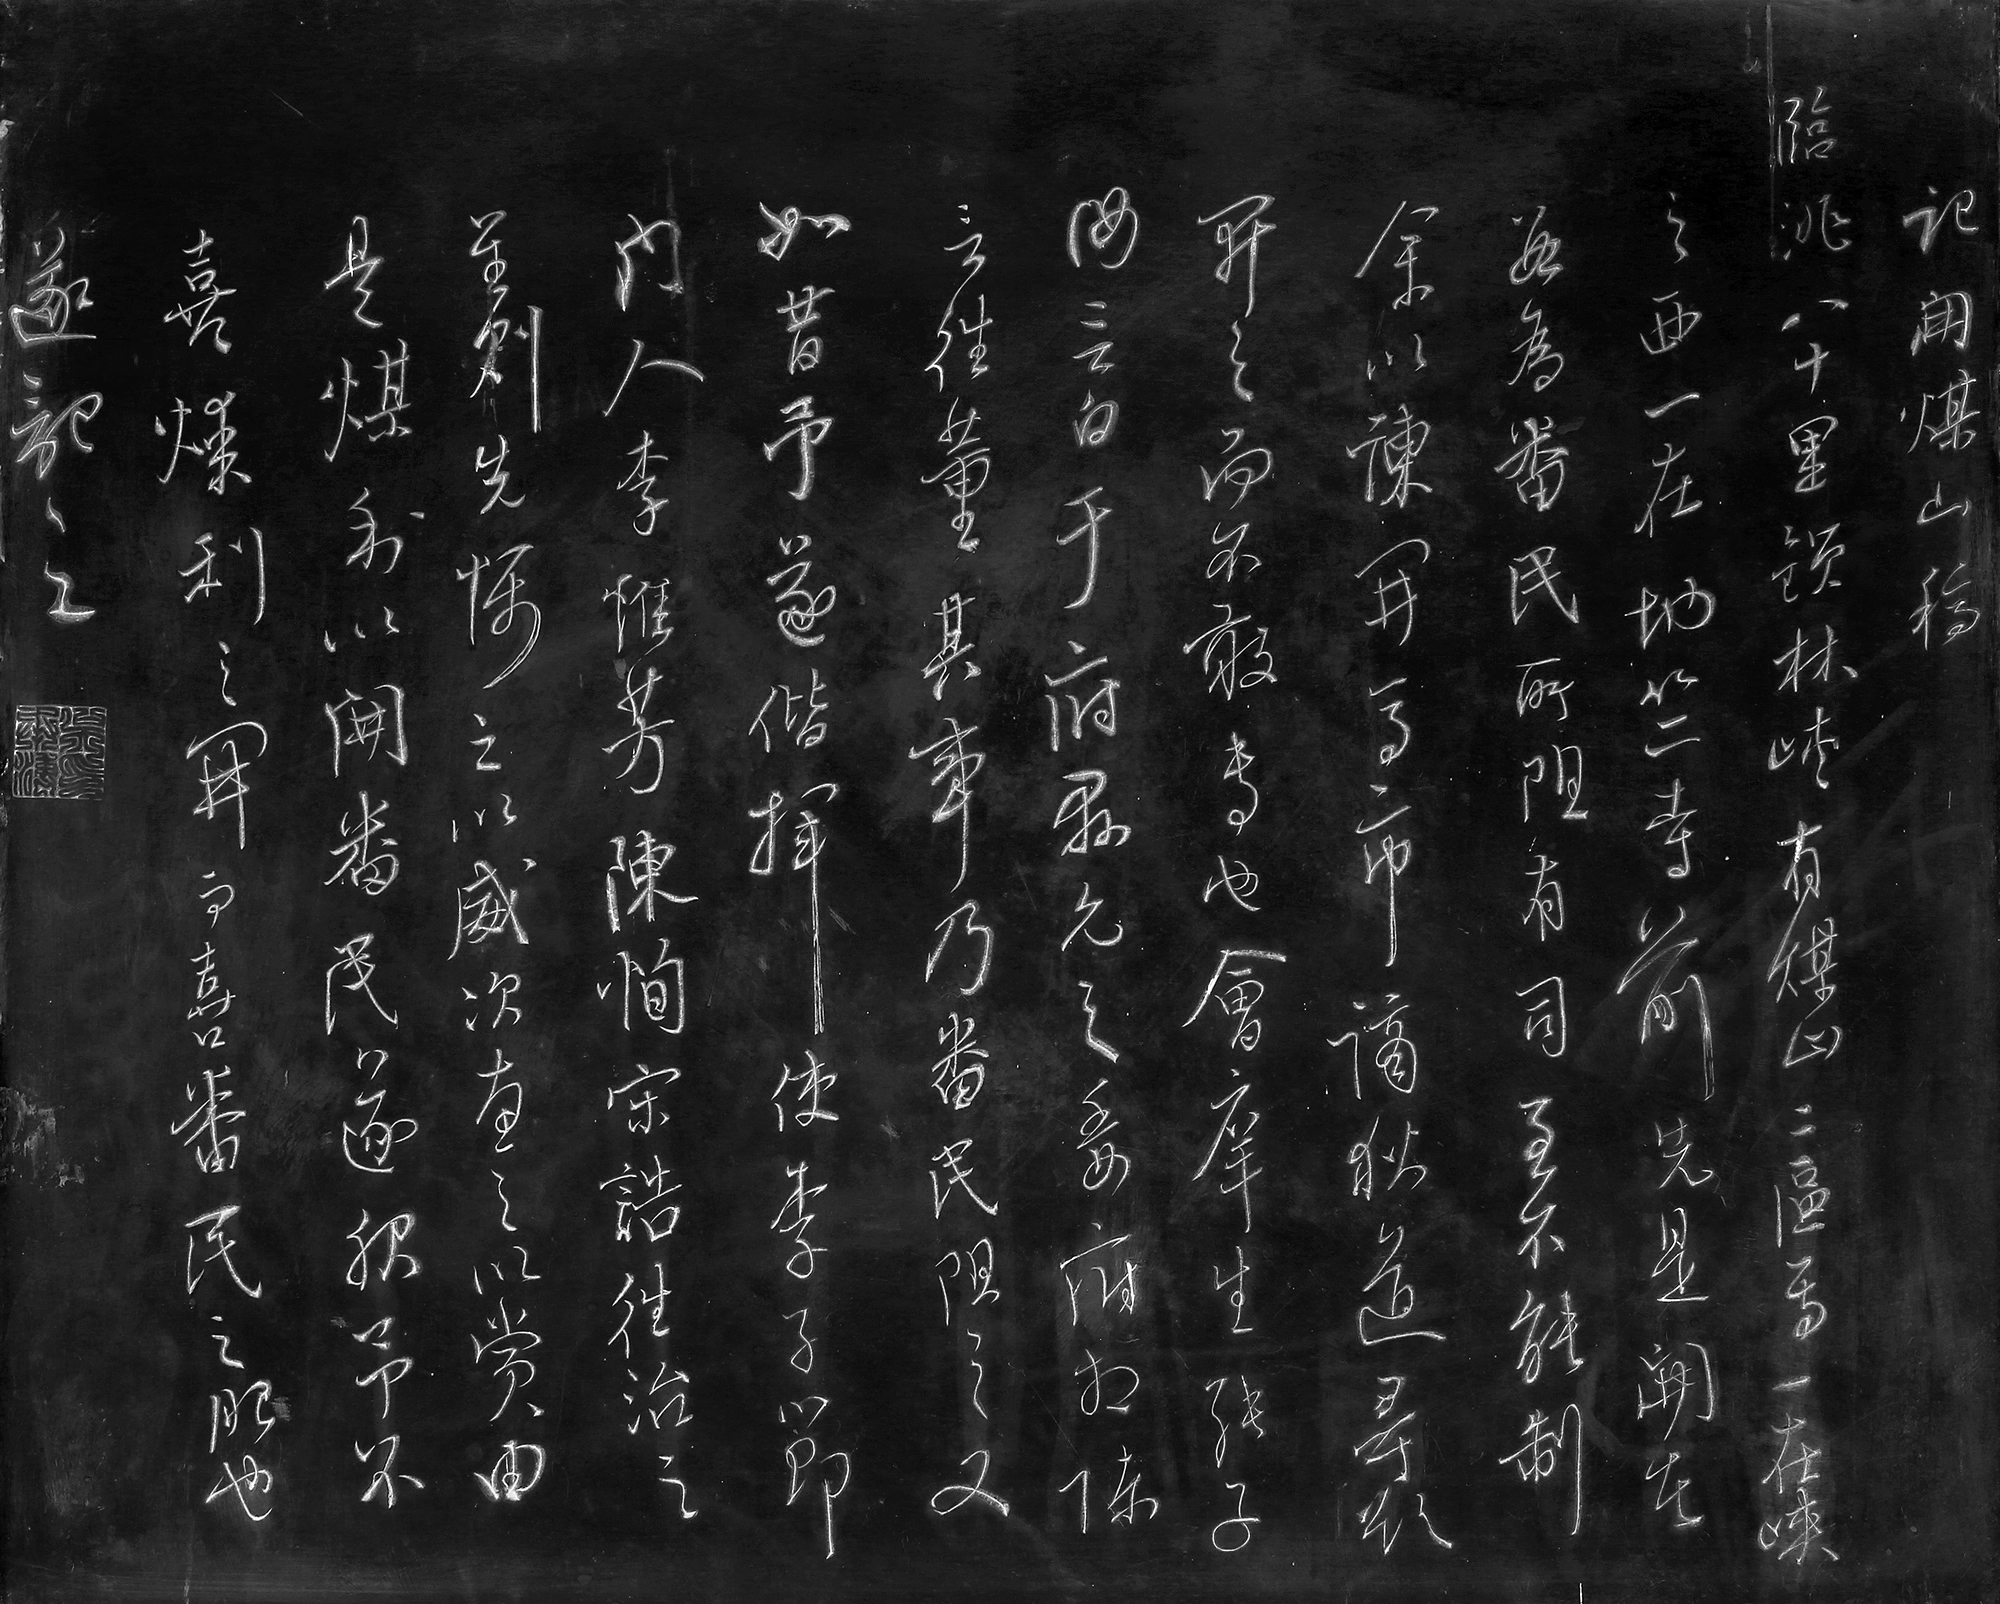 記開煤山稿
臨洮八十里鎖林峽有煤山二區焉一在峽
之西一在地竺寺前先是開
每為番民所阻有司至不能制
余以諫開馬市謫狄道尋欲
開之而不敢專也會庠生張子
汝言白于府縣允之委府相陳
言往董其事乃番民阻之又
如昔予遂偕揮使李子以節
門人李惟芳陳恂宋誥往治之
至則先惕之以威次直之以賞由
是煤利以開番民遂服予不
喜煤利之開而喜番民之服也
遂記之